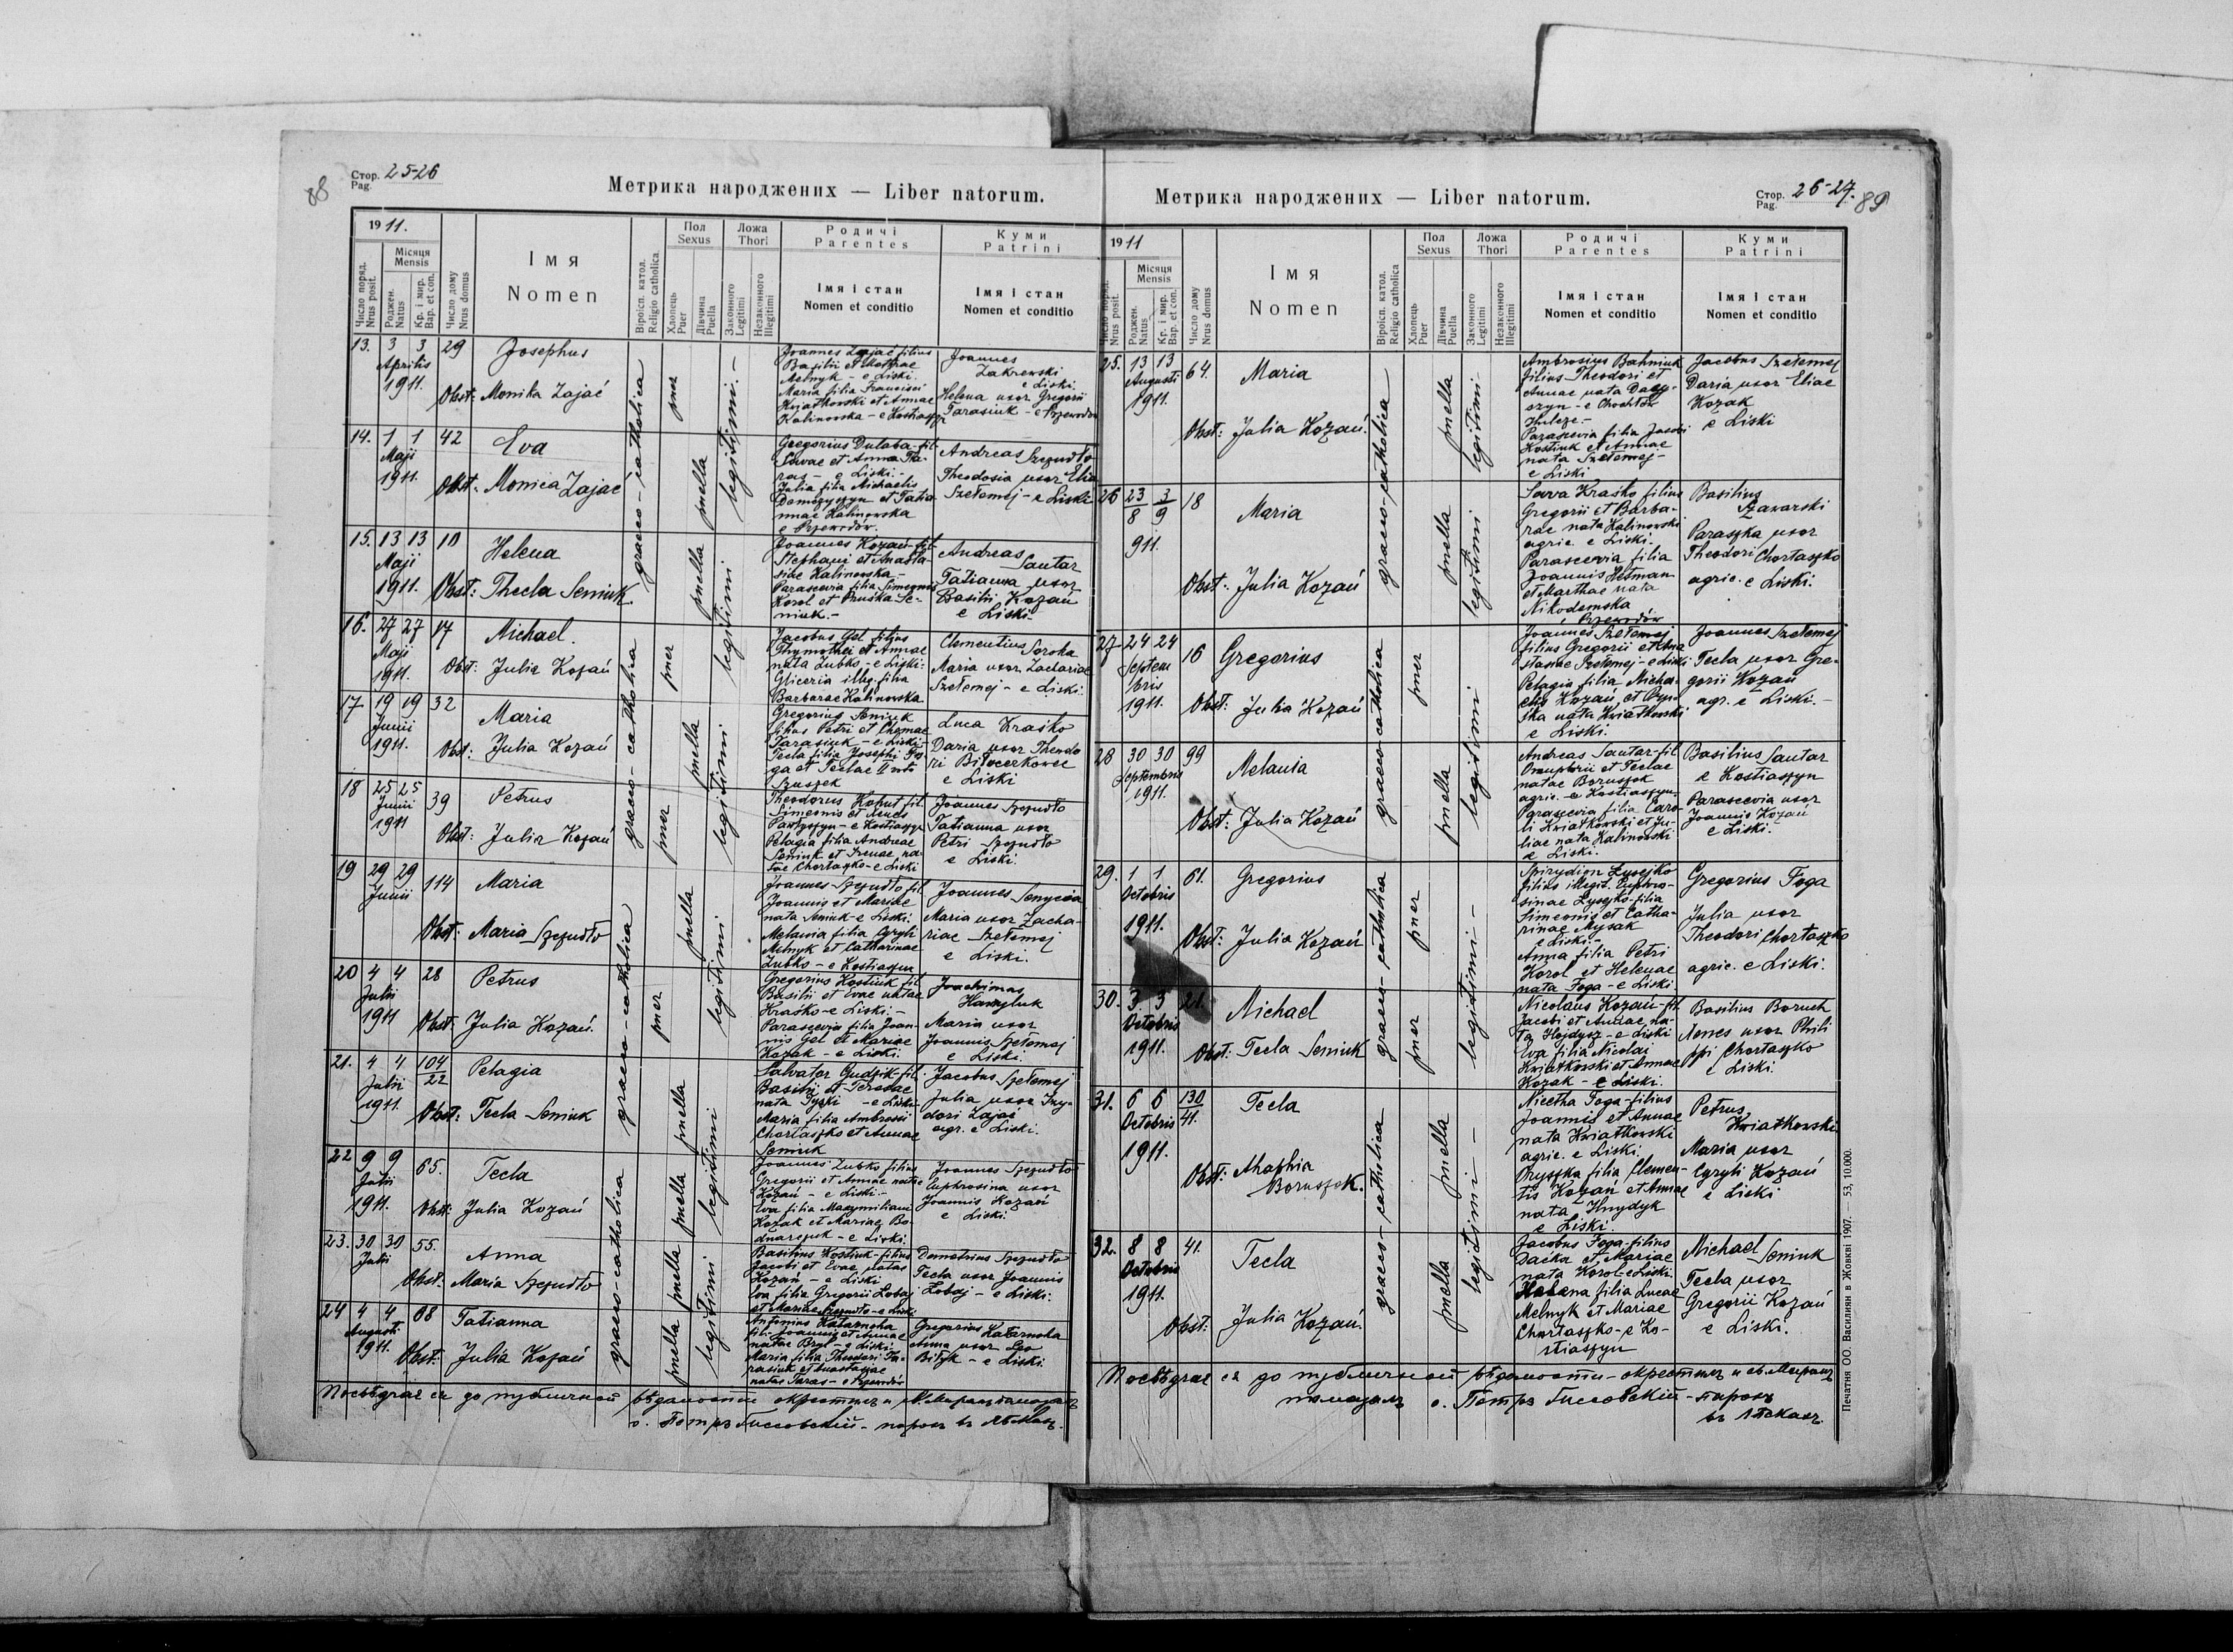 88
Стор. 25-26
Pag.
Метрика народжених — Liber natorum.
1911.
Число поряд.
Nrus posit.
Місяця
Mensis
Роджен.
Natus
Кр. і мир.
Bap. et con.
Число дому
Nrus domus
Імя
Nomen
Віроісп. катол.
Religio catholica.
Пол
Sexus
Хлопець
Puer
Дівчина
Puella
Ложа
Thori
Законного
Legitimi
Незаконного
Illegitimi
Родичі
Parentes
Імя і стан
Nomen et conditio
Куми
Patrini
Імя і стан
Nomen et conditio
13. 3 3 29 Josephus
Aprilis
1911. Obst: Monika Zając
puer
legitimi.-
Joannes Zając filius
Basilii et Mathrae
Melnyk - e Liski.
Maria filia Francisci
Kwiatkowski et Annae
Kalinowska - e Kostiaszyn
Joannes
Zakrewski
e Liski.
Helena uxor Gregorii
Tarasiuk - e Przewodów
graeco-catholica
14. 1 1 42 Eva
Maji
1911. Obst. Monica Zając
puella
Gregorius Dulaba-fil.
Savae et Anna
- e Liski.-
Julia filia Michaelis
et Tatia-
nnae Kalinowska
e Przewodów.
Andreas Szezudło
Theodosia uxor Elia
Szełemej - e Liski
15. 13 13 10 Helena
Maji
1911. Obst: Thecla Semiuk.
puella
legitimi
Joannes Kozań fil.
Stephani et Anasta-
siae Kalinowska.-
Parascevia filia Simeonis
Korol et Pruśka Se-
miuk.-
Andreas
Sautar
Tatianna uxor
Basilii Kozań
e Liski.
16. 27 27 17 Michael.
Maji
1911. Obst: Julia Kozań
puer
legitimi
Jacobus Gel filius
Thymothei et Annae
nata Zubko - e Liski:
Gliceria illeg. filia
Barbarae Kalinowska
Clementius Soroka
Maria uxor Zachariae
Szełemej - e Liski.
graeco-catholica
17 19 19 32 Maria
Junii
1911. Obst: Julia Kozań
puella
legitimi
Gregorius Semiuk
filius Petri et
Tarasiuk - e Liski-
Tecla filia Josephi Fo-
ga et Teclae II voto
Szuszek
Luca Kraśko
Daria uxor Theodo
ri Biłocerkowec
e Liski
18 25 25 39 Petrus
Junii
1911 Obst: Julia Kozań
puer
Theodorus Kohut fil.
Simeonis et
- e Kostiaszyn
Pelagia filia Andreae
Semiuk et Irenae na-
tae Chortaszko - e Liski
Joannes Szezudło
Tatianna uxor
Petri Szezudło
e Liski.
19 29 29 114 Maria
Junii
Obst: Maria Szezudło
puella
legitimi
Joannes Szezudło fil
Joannis et Mariae
nata Semiuk - e Liski.
Melania filia Cyryli
Melnyk et Catharinae
Zubko - e Kostiaszyn
Joannes Senycia
Maria uxor Zacha-
riae Szełemej
e Liski.
20 4 4 28 Petrus
Julii
1911 Obst: Julia Kozań.
puer
Gregorius Kostiuk fil.
Basilii et Evae natae
Kraśko - e Liski.-
Parascevia filia Joan-
nis Gel et Mariae
Kozak - e Liski.
Joachimas
Hawryluk
Maria uxor
Joannis Szełemej
e Liski.
graeco-catholica
21. 4 4 104/22 Pelagia
Julii
1911. Obst: Tecla Semiuk
puella
legitimi
Salvator Gudzik fil.
Basilii et Teresae
nata - e Liski
Maria filia Ambrosii
Chortaszko et Annae
Semiuk
Jacobus Szełemej
Julia uxor Izy-
dori Zając
agr. e Liski.
22 9 9 65. Tecla
Julii
1911. Obst: Julia Kozań
puella
Joannes Zubko filius
Gregorii et Annae nata
Kozań - e Liski.-
Eva filia Maxymiliani
Kozak et Mariae Bo-
dnarczuk - e Liski.
Joannes Szezudło
Euphrosina uxor
Joannis Kozań
e Liski.
23. 30 30 55. Anna
Julii
Obst. Maria Szezudło
puella
legitimi
Basilius Kostiuk - filius
Jacobi et Evae natae
Kozań - e Liski
Eva filia Gregorii Łobaj
et Mariae Szezudło - e Liski
Demetrius Szezudło
Tecla uxor Joannis
Łobaj - e Liski:
24 4 4 68 Tatianna
Augusti
1911. Obst: Julia Kozań
puella
graeco-catholica
Antonius Katarncha
fil. Joannis et Annae
natae Bryl - e Liski
Maria filia Theodori Ta-
rasiuk et Anastasiae
natae Taras - e Przewodów
Gregorius Katarncha
Anna uxor Leo
Biłyk - e Liski
о. Петръ
Метрика народжених — Liber natorum.
Стор. 26-27.
Pag.
89
1911
Число поряд.
Nrus posit.
Місяця
Mensis
Роджен.
Natus
Кр. і мир.
Bap. et con.
Число дому
Nrus domus
Імя
Nomen
Віроісп. катол.
Religio catholica
Пол
Sexus
Хлопець
Puer
Дівчина
Puella
Ложа
Thori
Законного
Legitimi
Незаконного
Illegitimi
Родичі
Parentes
Імя і стан
Nomen et conditio
Куми
Patrini
Імя і стан
Nomen et conditio
25. 13 13 64. Maria
Augusti
1911.
Obst: Julia Kozań.
puella
legitimi
Ambrosius Bahniuk
filius Theodori et
Annae nata
szyn - e Chochłów
Parascevia filia Jacobi
Kostiuk et Annae
nata Szełemej -
e Liski
Jacobus Szełemej
Daria uxor Eliae
Kozak
e Liski
graeco-catholica
26 23/8 3/9 18 Maria
911.
Obst: Julia Kozań
puella
legitimi
Sava Kraśko filius
Gregorii et Barba-
rae nata Kalinowska
agric. e Liski.
Parascevia filia
Joannis Hetman
et Marthae nata
Nikodemska
e Przewodów
Basilius
Szawarski
Paraszka uxor
Theodori Chortaszko
agric. e Liski.
27 24 24 16 Gregorius
Septem
bris
1911. Obst: Julia Kozań
puer
legitimi
Joannes Szełemej
filius Gregorii et Ana
stasiae Szełemej - e Liski
Pelagia filia Micha-
elis Kozań, et Pru-
śka nata Kwiatkowski
e Liski.
Joannes Szełemej
Tecla uxor Gre-
gorii Kozań
agr. e Liski.-
28 30 30 99 Melania
Septembris
1911.
Obst: Julia Kozań
graeco-catholica
puella
legitimi
Andreas Sautar - fil
Onuphrii et Teclae
natae Boruszek
agric. e Kostiaszyn.-
Parascevia filia Caro-
li Kwiatkowski et Ju-
liae nata Kalinowski
e Liski.
Basilius Sautar
e Kostiaszyn
Parascevia uxor
Joannis Kozań
e Liski.
29. 1 1 61. Gregorius
Octobris
1911. Obst: Julia Kozań
puer
legitimi -
Spirydion Łysejko
filius illegit. Euphro-
sinae Łysejko - filia
Simeonis et Catha-
rinae Mysak
e Liski.-
Anna filia Petri
Korol et Helenae
nata Foga - e Liski
Gregorius Foga
Julia uxor
Theodori Chortaszko
agric. e Liski.
graeco-catholica
30. 3 3 21. Michael
Octobris
1911. Obst: Tecla Semiuk
puer
legitimi
Nicolaus Kozań - fil.
Jacobi et Annae na-
ta Hajdysz - e Liski
Eva filia Nicolai
Kwiatkowski et Annae
Kozak - e Liski.
Basilius Boruch
Agnes uxor Phili
ppi Chortaszko
e Liski.
31. 6 6 130/41. Tecla
Octobris
1911.
Obst: Ahaphia
Boruszek.
graeco-catholica
puella
legitimi -
Nicetha Foga - filius
Joannis et Annae
nata Kwiatkowski
agric. e Liski.
Pryśka filia Clemen-
tis Kozań et Annae
nata Hnydyk
e Liski.
Petrus
Kwiatkowski
Maria uxor
Cyryli Kozań
e Liski
32. 8 8 41. Tecla
Octobris
1911.
Obst: Julia Kozań.
puella
legitimi
Jacobus Foga - filius
Daćka et Mariae
nata Korol - e Liski.
Helena filia Lucae
Melnyk et Mariae
Chortaszko - e Ko-
stiaszyn
Michael Semiuk
Tecla uxor
Gregorii Kozań
e Liski.
о. Петръ
Печатня ОО. Василиян в Жовкві 1907. — 53, 10.000.